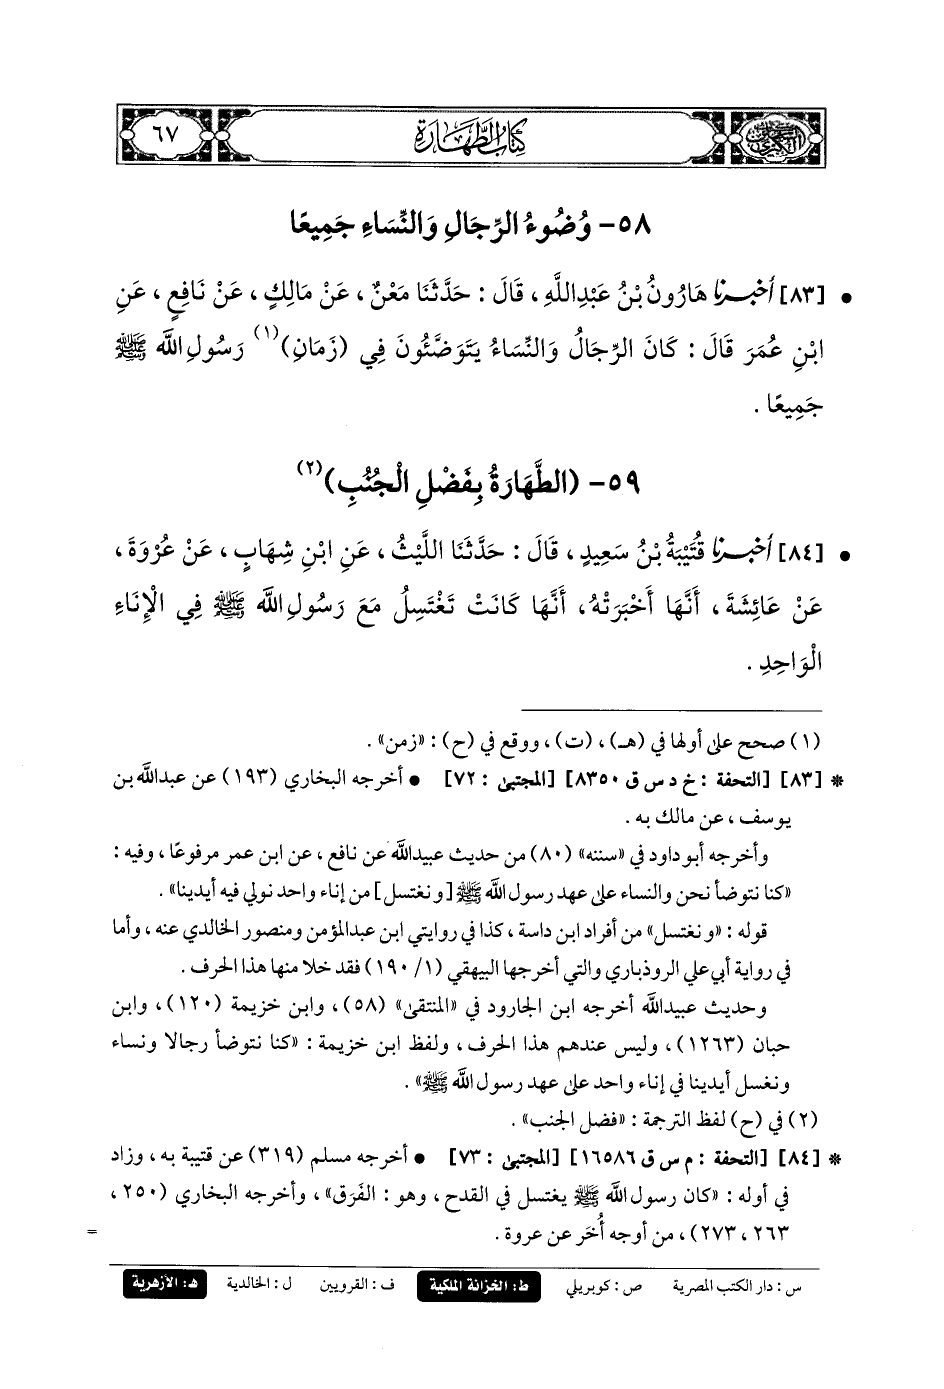 السنن الكبرى
كتاب الطهارة
٦٧
٥٨- وُضُوءُ الرِّجَالِ وَالنِّسَاءِ جَمِيعًا
• [٨٣] أخبرنا هَارُونُ بْنُ عَبْدِاللَّهِ، قَالَ: حَدَّثَنَا مَعْنٌ، عَنْ مَالِكٍ، عَنْ نَافِعٍ، عَنِ
ابْنِ عُمَرَ قَالَ: كَانَ الرِّجَالُ وَالنِّسَاءُ يَتَوَضَّئُونَ فِي (زَمَانِ)(١) رَسُولِ اللَّهِ ﷺ
جَمِيعًا.
٥٩- (الطَّهَارَةُ بِفَضْلِ الْجُنُبِ)(٢)
• [٨٤] أخبرنا قُتَيْبَةُ بْنُ سَعِيدٍ، قَالَ: حَدَّثَنَا اللَّيْثُ، عَنِ ابْنِ شِهَابٍ، عَنْ عُرْوَةَ،
عَنْ عَائِشَةَ، أَنَّهَا أَخْبَرَتْهُ، أَنَّهَا كَانَتْ تَغْتَسِلُ مَعَ رَسُولِ اللَّهِ ﷺ فِي الْإِنَاءِ
الْوَاحِدِ.
(١) صحح على أولها في (هـ)، (ت)، ووقع في (ح): «زمن».
* [٨٣] [التحفة: خ د س ق ٨٣٥٠] [المجتبى: ٧٢] • أخرجه البخاري (١٩٣) عن عبدالله بن
يوسف، عن مالك به.
وأخرجه أبو داود في «سننه» (٨٠) من حديث عبيدالله عن نافع، عن ابن عمر مرفوعًا، وفيه:
«كنا نتوضأ نحن والنساء على عهد رسول الله ﷺ [ونغتسل] من إناء واحد نولي فيه أيدينا».
قوله: «ونغتسل» من أفراد ابن داسة، كذا في روايتي ابن عبدالمؤمن ومنصور الخالدي عنه، وأما
في رواية أبي علي الروذباري والتي أخرجها البيهقي (١/ ١٩٠) فقد خلا منها هذا الحرف.
وحديث عبيدالله أخرجه ابن الجارود في «المنتقى» (٥٨)، وابن خزيمة (١٢٠)، وابن
حبان (١٢٦٣)، وليس عندهم هذا الحرف، ولفظ ابن خزيمة: «كنا نتوضأ رجالا ونساء
ونغسل أيدينا في إناء واحد على عهد رسول الله ﷺ».
(٢) في (ح) لفظ الترجمة: «فضل الجنب».
* [٨٤] [التحفة: م س ق ١٦٥٨٦] [المجتبى: ٧٣] • أخرجه مسلم (٣١٩) عن قتيبة به، وزاد
في أوله: «كان رسول الله ﷺ يغتسل في القدح، وهو: الفَرَق»، وأخرجه البخاري (٢٥٠،
٢٦٣، ٢٧٣)، من أوجه أُخَر عن عروة. =
س: دار الكتب المصرية ص: كوبريلي ط: الخزانة الملكية ف: القرويين ل: الخالدية هـ: الأزهرية